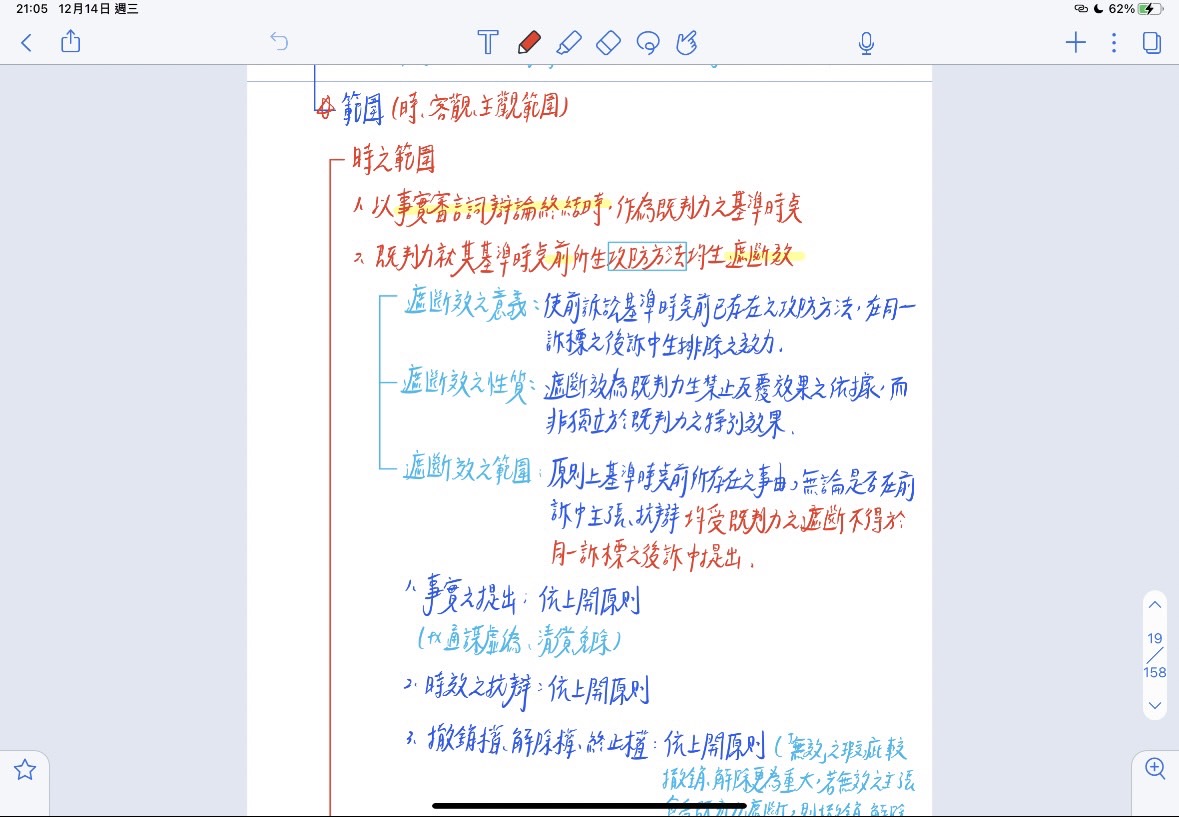 21:05 12月14日 週三
62%
範圍(時、客觀、主觀範圍)
時之範圍
1. 以事實審言詞辯論終結時,作為既判力之基準時點
2. 既判力就其基準時點前所生攻防方法均生遮斷效
遮斷效之意義:使前訴訟基準時點前已存在之攻防方法,在同一
訴標之後訴中生排除之效力.
遮斷效之性質:遮斷效為既判力生禁止反覆效果之依據,而
非獨立於既判力之特別效果.
遮斷效之範圍:原則上基準時點前所存在之事由,無論是否在前
訴中主張、抗辯均受既判力之遮斷不得於
同一訴標之後訴中提出.
1. 事實之提出:依上開原則
(fx通謀虛偽、清償免除)
2. 時效之抗辯:依上開原則
3. 撤銷權、解除權、終止權:依上開原則(「無效」之瑕疵較
撤銷、解除更為重大,若無效之主張
19
158